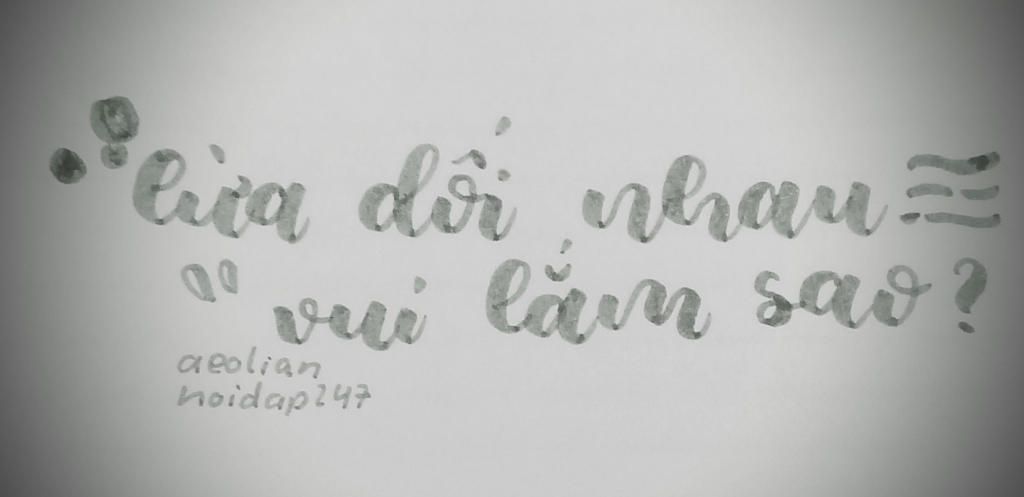 lừa dối nhau
vui lắm sao?
aeolian
hoidap247